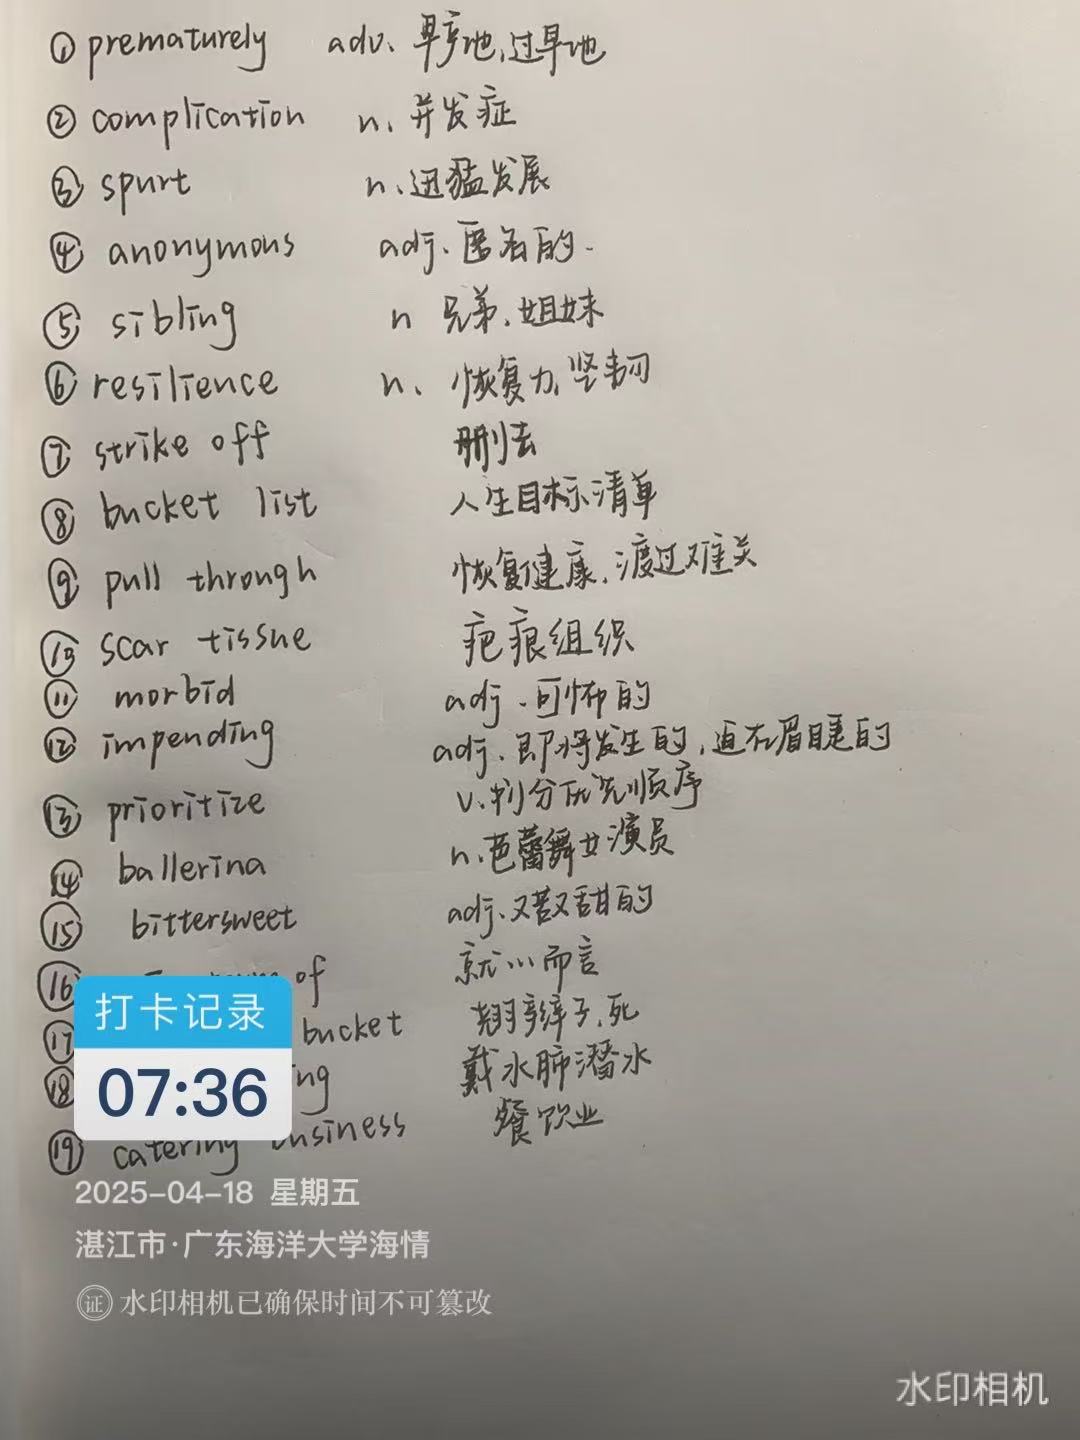 ① prematurely adv. 早产地,过早地
② complication n. 并发症
③ spurt n. 迅猛发展
④ anonymous adj. 匿名的.
⑤ sibling n 兄弟.姐妹
⑥ resilience n. 恢复力,坚韧
⑦ strike off 删去
⑧ bucket list 人生目标清单
⑨ pull through 恢复健康.渡过难关
⑩ scar tissue 疤痕组织
⑪ morbid adj.可怖的
⑫ impending adj.即将发生的,迫在眉睫的
⑬ prioritize v.划分优先顺序
⑭ ballerina n.芭蕾舞女演员
⑮ bittersweet adj.又苦又甜的
⑯ of 就…而言
⑰ bucket 翘辫子.死
⑱ ng 戴水肺潜水
⑲ catering business 餐饮业
打卡记录
07:36
2025-04-18 星期五
湛江市·广东海洋大学海情
证 水印相机已确保时间不可篡改
水印相机